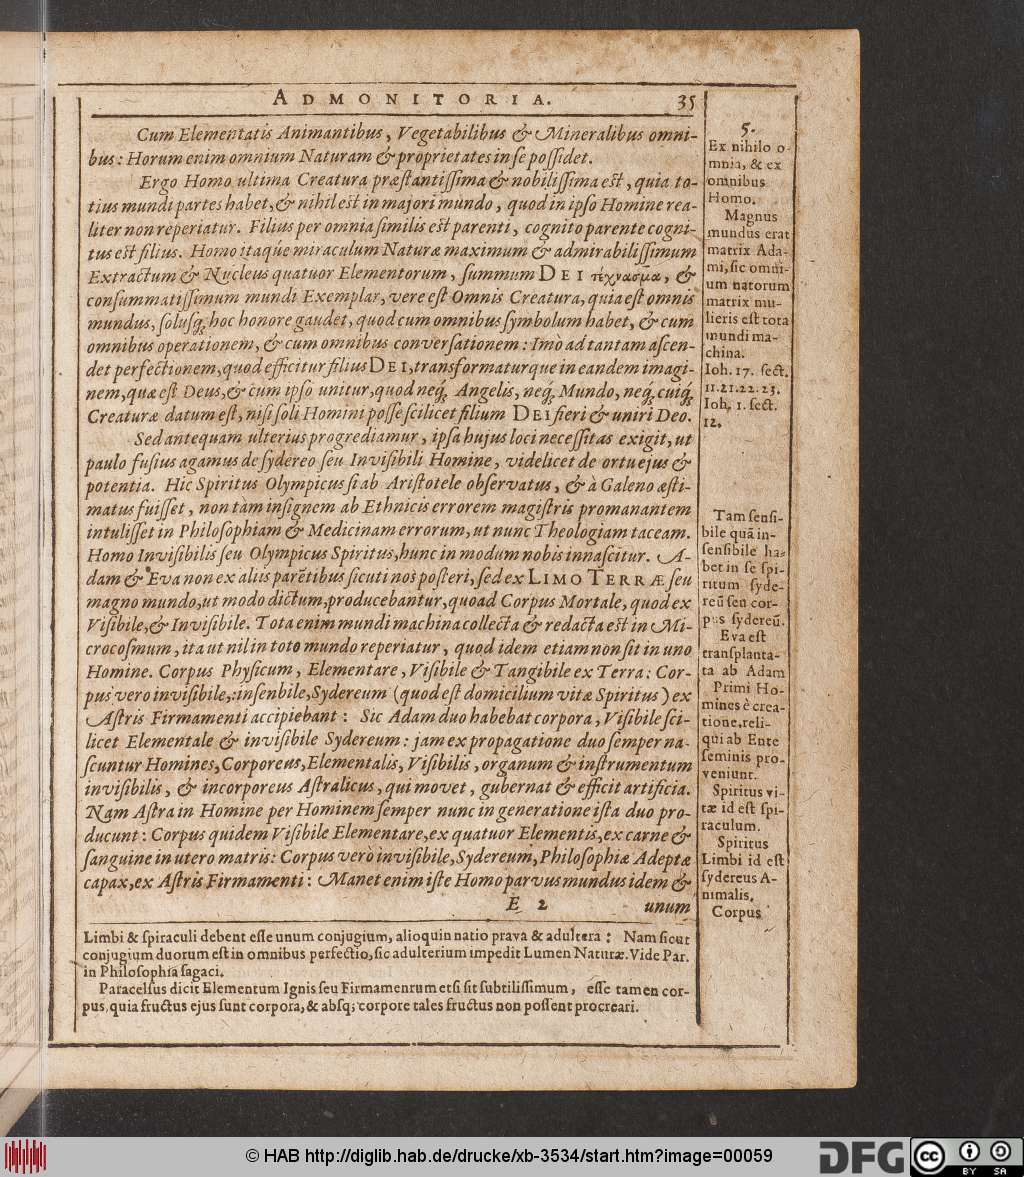 ADMONITORIA. 35
Cum Elementatis Animantibus, Vegetabilibus & Mineralibus omni-
bus: Horum enim omnium Naturam & proprietates in se possidet.
Ergo Homo ultima Creatura præstantissima & nobilissima est, quia to-
tius mundi partes habet, & nihil est in majori mundo, quod in ipso Homine rea-
liter non reperiatur. Filius per omnia similis est parenti, cognito parente cogni-
tus est filius. Homo itaque miraculum Naturæ maximum & admirabilissimum
Extractum & Nucleus quatuor Elementorum, summum DEI τέχνασμα, &
consummatissimum mundi Exemplar, vere est Omnis Creatura, quia est omnis
mundus, solusq; hoc honore gaudet, quod cum omnibus symbolum habet, & cum
omnibus operationem, & cum omnibus conversationem: Imò ad tantam ascen-
det perfectionem, quod efficitur filius DEI, transformaturque in eandem imagi-
nem, quæ est Deus, & cum ipso unitur, quod neq; Angelis, neq; Mundo, neq; cuiq;
Creaturæ datum est, nisi soli Homini posse scilicet filium DEI fieri & uniri Deo.
Sed antequam ulterius progrediamur, ipsa hujus loci necessitas exigit, ut
paulo fusius agamus de sydereo seu Invisibili Homine, videlicet de ortu ejus &
potentia. Hic Spiritus Olympicus si ab Aristotele observatus, & à Galeno æsti-
matus fuisset, non tàm insignem ab Ethnicis errorem magistris promanantem
intulisset in Philosophiam & Medicinam errorum, ut nunc Theologiam taceam.
Homo Invisibilis seu Olympicus Spiritus, hunc in modum nobis innascitur. A-
dam & Eva non ex aliis parētibus sicuti nos posteri, sed ex LIMO TERRÆ seu
magno mundo, ut modo dictum, producebantur, quoad Corpus Mortale, quod ex
Visibile, & Invisibile. Tota enim mundi machina collecta & redacta est in Mi-
crocosmum, ita ut nil in toto mundo reperiatur, quod idem etiam non sit in uno
Homine. Corpus Physicum, Elementare, Visibile & Tangibile ex Terra: Cor-
pus vero invisibile, insenbile, Sydereum (quod est domicilium vitæ Spiritus) ex
Astris Firmamenti accipiebant: Sic Adam duo habebat corpora, Visibile sci-
licet Elementale & invisibile Sydereum: jam ex propagatione duo semper na-
scuntur Homines, Corporeus, Elementalis, Visibilis, organum & instrumentum
invisibilis, & incorporeus Astralicus, qui movet, gubernat & efficit artificia.
Nam Astra in Homine per Hominem semper nunc in generatione ista duo pro-
ducunt: Corpus quidem Visibile Elementare, ex quatuor Elementis, ex carne &
sanguine in utero matris: Corpus verò invisibile, Sydereum, Philosophiæ Adeptæ
capax, ex Astris Firmamenti: Manet enim iste Homo parvus mundus idem &
E 2 unum
5.
Ex nihilo o-
mnia, & ex
omnibus
Homo.
Magnus
mundus erat
matrix Ada-
mi, sic omni-
um natorum
matrix mu-
lieris est tota
mundi ma-
china.
Ioh. 17. sect.
11.21.22.23.
Ioh. 1. sect.
12.
Tam sensi-
bile quā in-
sensibile ha-
bet in se spi-
ritum syde-
reū seu cor-
pus sydereū.
Eva est
transplanta-
ta ab Adam
Primi Ho-
mines è crea-
tione, reli-
qui ab Ente
seminis pro-
veniunt.
Spiritus vi-
tæ id est spi-
raculum.
Spiritus
Limbi id est
sydereus A-
nimalis.
Corpus
Limbi & spiraculi debent esse unum conjugium, alioquin natio prava & adultera: Nam sicut
conjugium duorum est in omnibus perfectio, sic adulterium impedit Lumen Naturæ. Vide Par.
in Philosophia sagaci.
Paracelsus dicit Elementum Ignis seu Firmamentum etsi sit subtilissimum, esse tamen cor-
pus, quia fructus ejus sunt corpora, & absq; corpore tales fructus non possent procreari.
© HAB http://diglib.hab.de/drucke/xb-3534/start.htm?image=00059
DFG
cc
BY SA